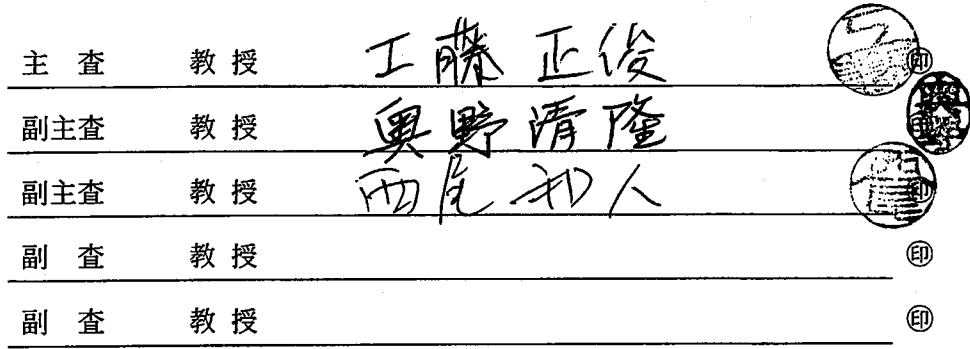 主 査 教 授 工藤 正俊 ㊞
副主査 教 授 奥野清隆
副主査 教 授 西尾 和人 ㊞
副 査 教 授 ㊞
副 査 教 授 ㊞